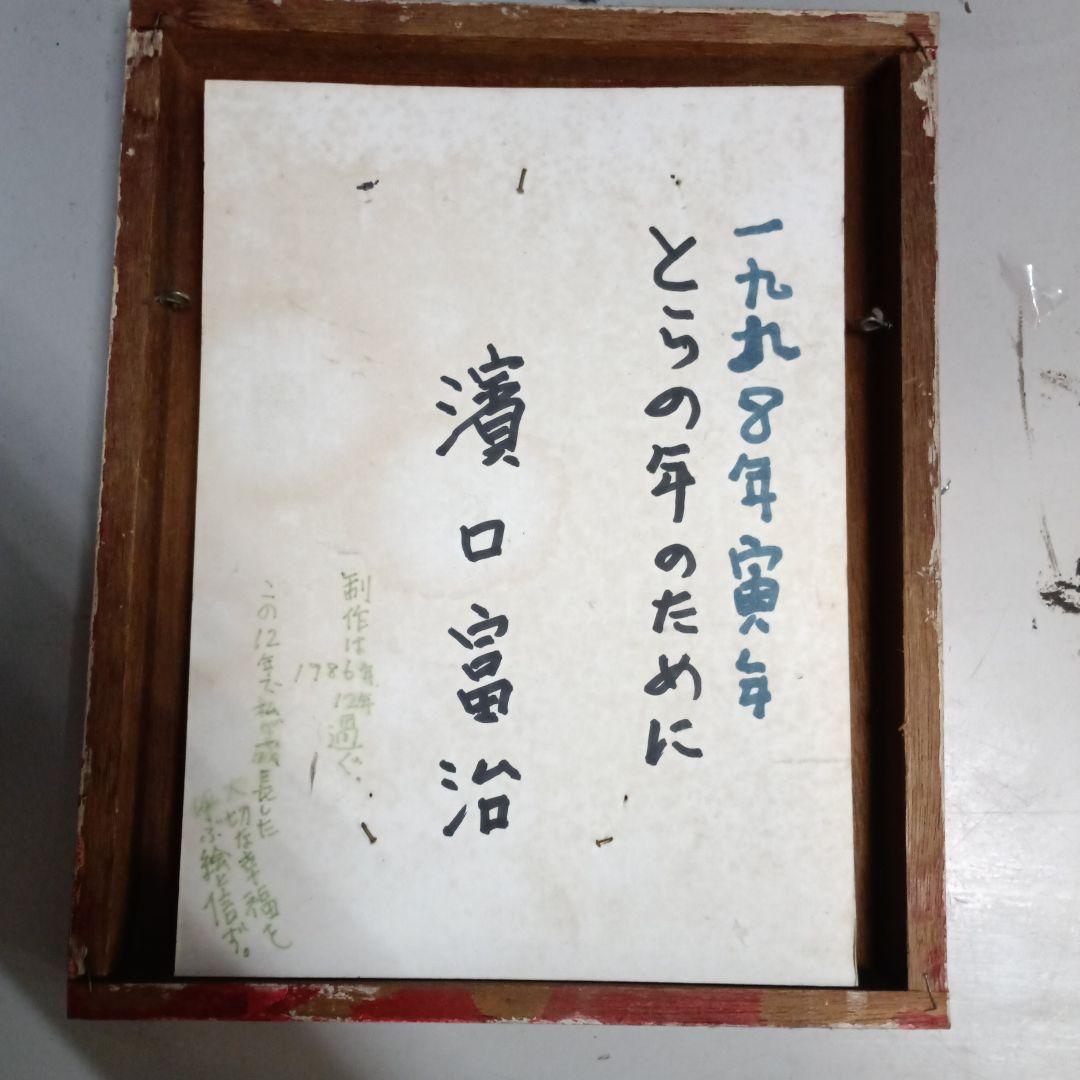 一九九8年寅年
とらの年のために
濱口富治
制作は
1986年
12年
過ぐ。
この12年で私が成長した
大切な幸福を
呼ぶ絵と信ず。